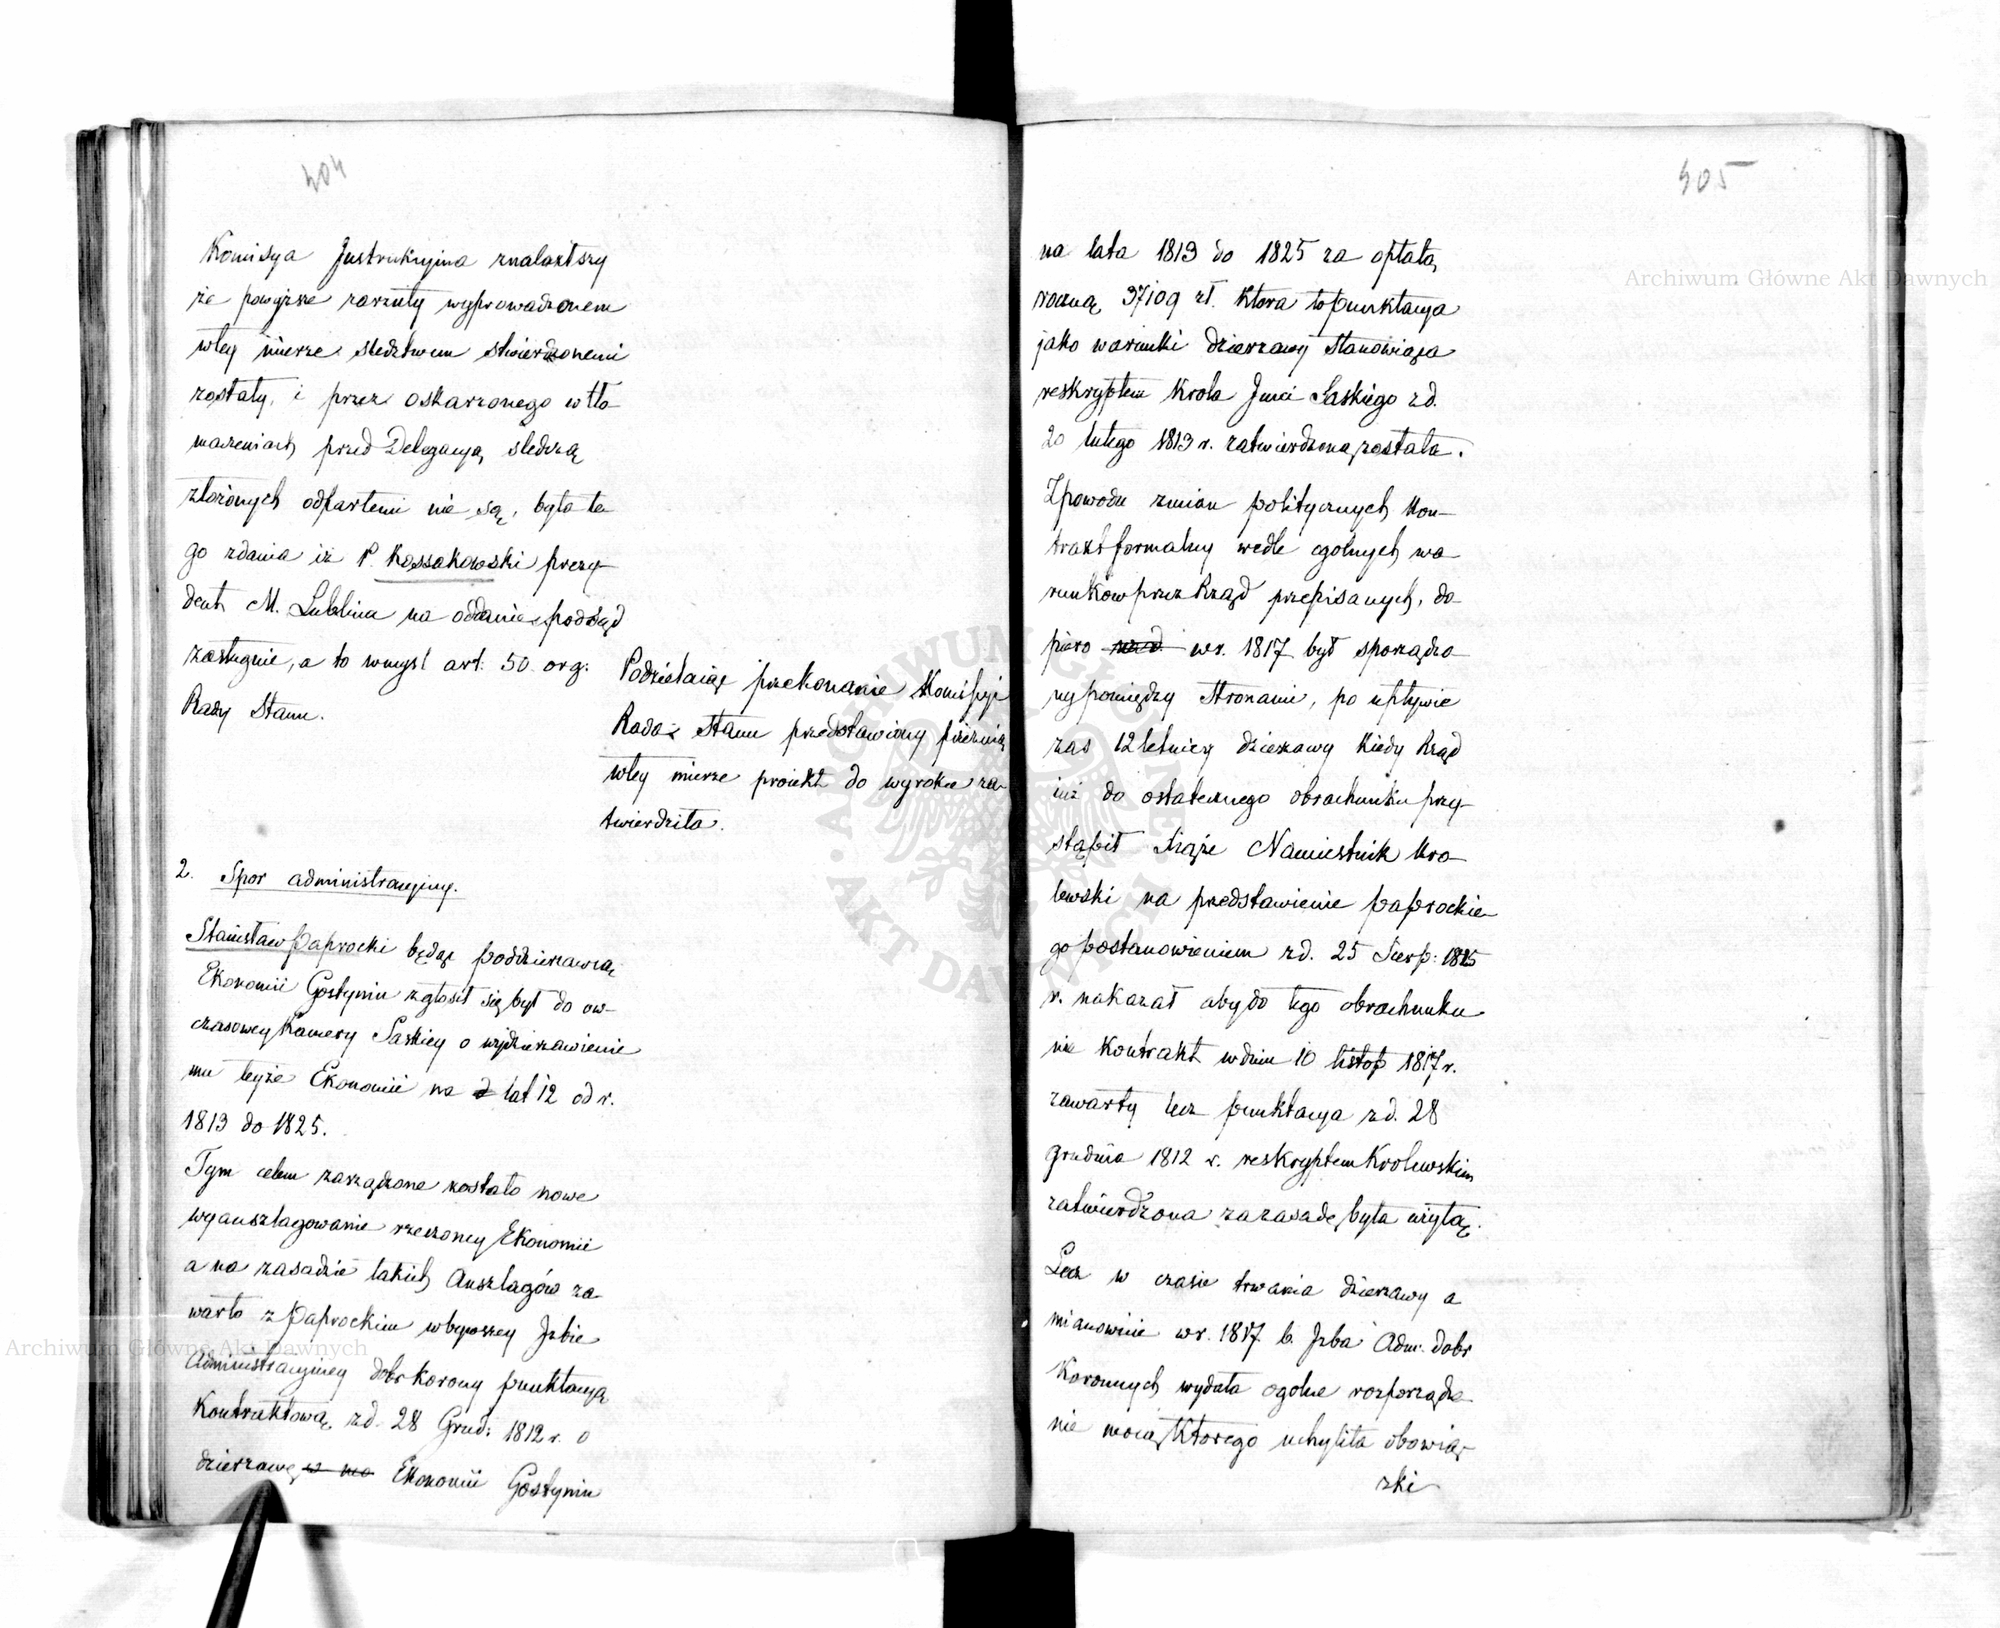 404
Komisya Instrukcyjna znalazłszy
że powyższe zarzuty wyprowadzonem
wtey mierze śledztwem stwierdzonemi
zostały, i przez oskarzonego w tło
maczeniach przed Delegacyą śledczą
złożonych odpartemi nie są, była te
go zdania iż P. Kossakowski prezy
dent M. Lublina na oddanie pod sąd
zasługuie, a to wmyśl art. 50. org:
Rady Stanu.
Podzielaiąc przekonanie Komissyi
Rada Stanu przedstawiony przez nią
wtey mierze proiekt do wyroku za
twierdziła.
2. Spor administracyiny.
Stanisław Paprocki będąc poddzierzawcą
Ekonomii Gostynin zgłosił się był do ow-
czasowey Kamery Saskiey o wydzierzawienie
mu teyże Ekonomii na lat 12 od r.
1813 do 1825.
Tym celem zarządzone zostało nowe
wyanszlagowanie rzeczoney Ekonomii
a na zasadzie takich Anszlagów za
warto z Paprockim wbywszey Izbie
Administracyiney dobr korony punktacyą
Kontraktową zd. 28 Grud: 1812 r. o
dzierzawę w na Ekonomii Gostynin
405
na lata 1813 do 1825 za opłatą
roczną 37109 zł. Ktora to punktacya
jako warunki dzierzawy stanowiąca
reskryptem Krola Jmci Saskiego zd.
20 lutego 1813 r. zatwierdzoną została.
Zpowodu zmian politycznych kon-
trakt formalny wedle ogolnych wa
runków przez Rząd przepisanych, do
piero wr. 1817 był sporządzo
ny pomiędzy Stronami, po upływie
zas 12letniey dzierzawy Kiedy Rząd
iuż do ostatecznego obrachunku przy-
stąpił Xiąże Namiestnik Kro-
lewski na przedstawienie Paprockie
go postanowieniem zd. 25 Sierp: 1825
r. nakazał aby do tego obrachunku
nie Kontrakt wdniu 10 listop 1817 r.
zawarty lecz punktacya zd. 28
grudnia 1812 r. reskryptem Krolewskim
zatwierdzona za zasadę była użytą.
Lecz w czasie trwania dzierzawy a
mianowicie wr. 1817 b. Izba Adm. dobr
Koronnych wydała ogolne rozporządze
nie mocą Ktorego uchyliła obowią-
zki
Archiwum Główne Akt Dawnych
Archiwum Główne Akt Dawnych
ARCHIWUM GŁÓWNE AKT DAWNYCH